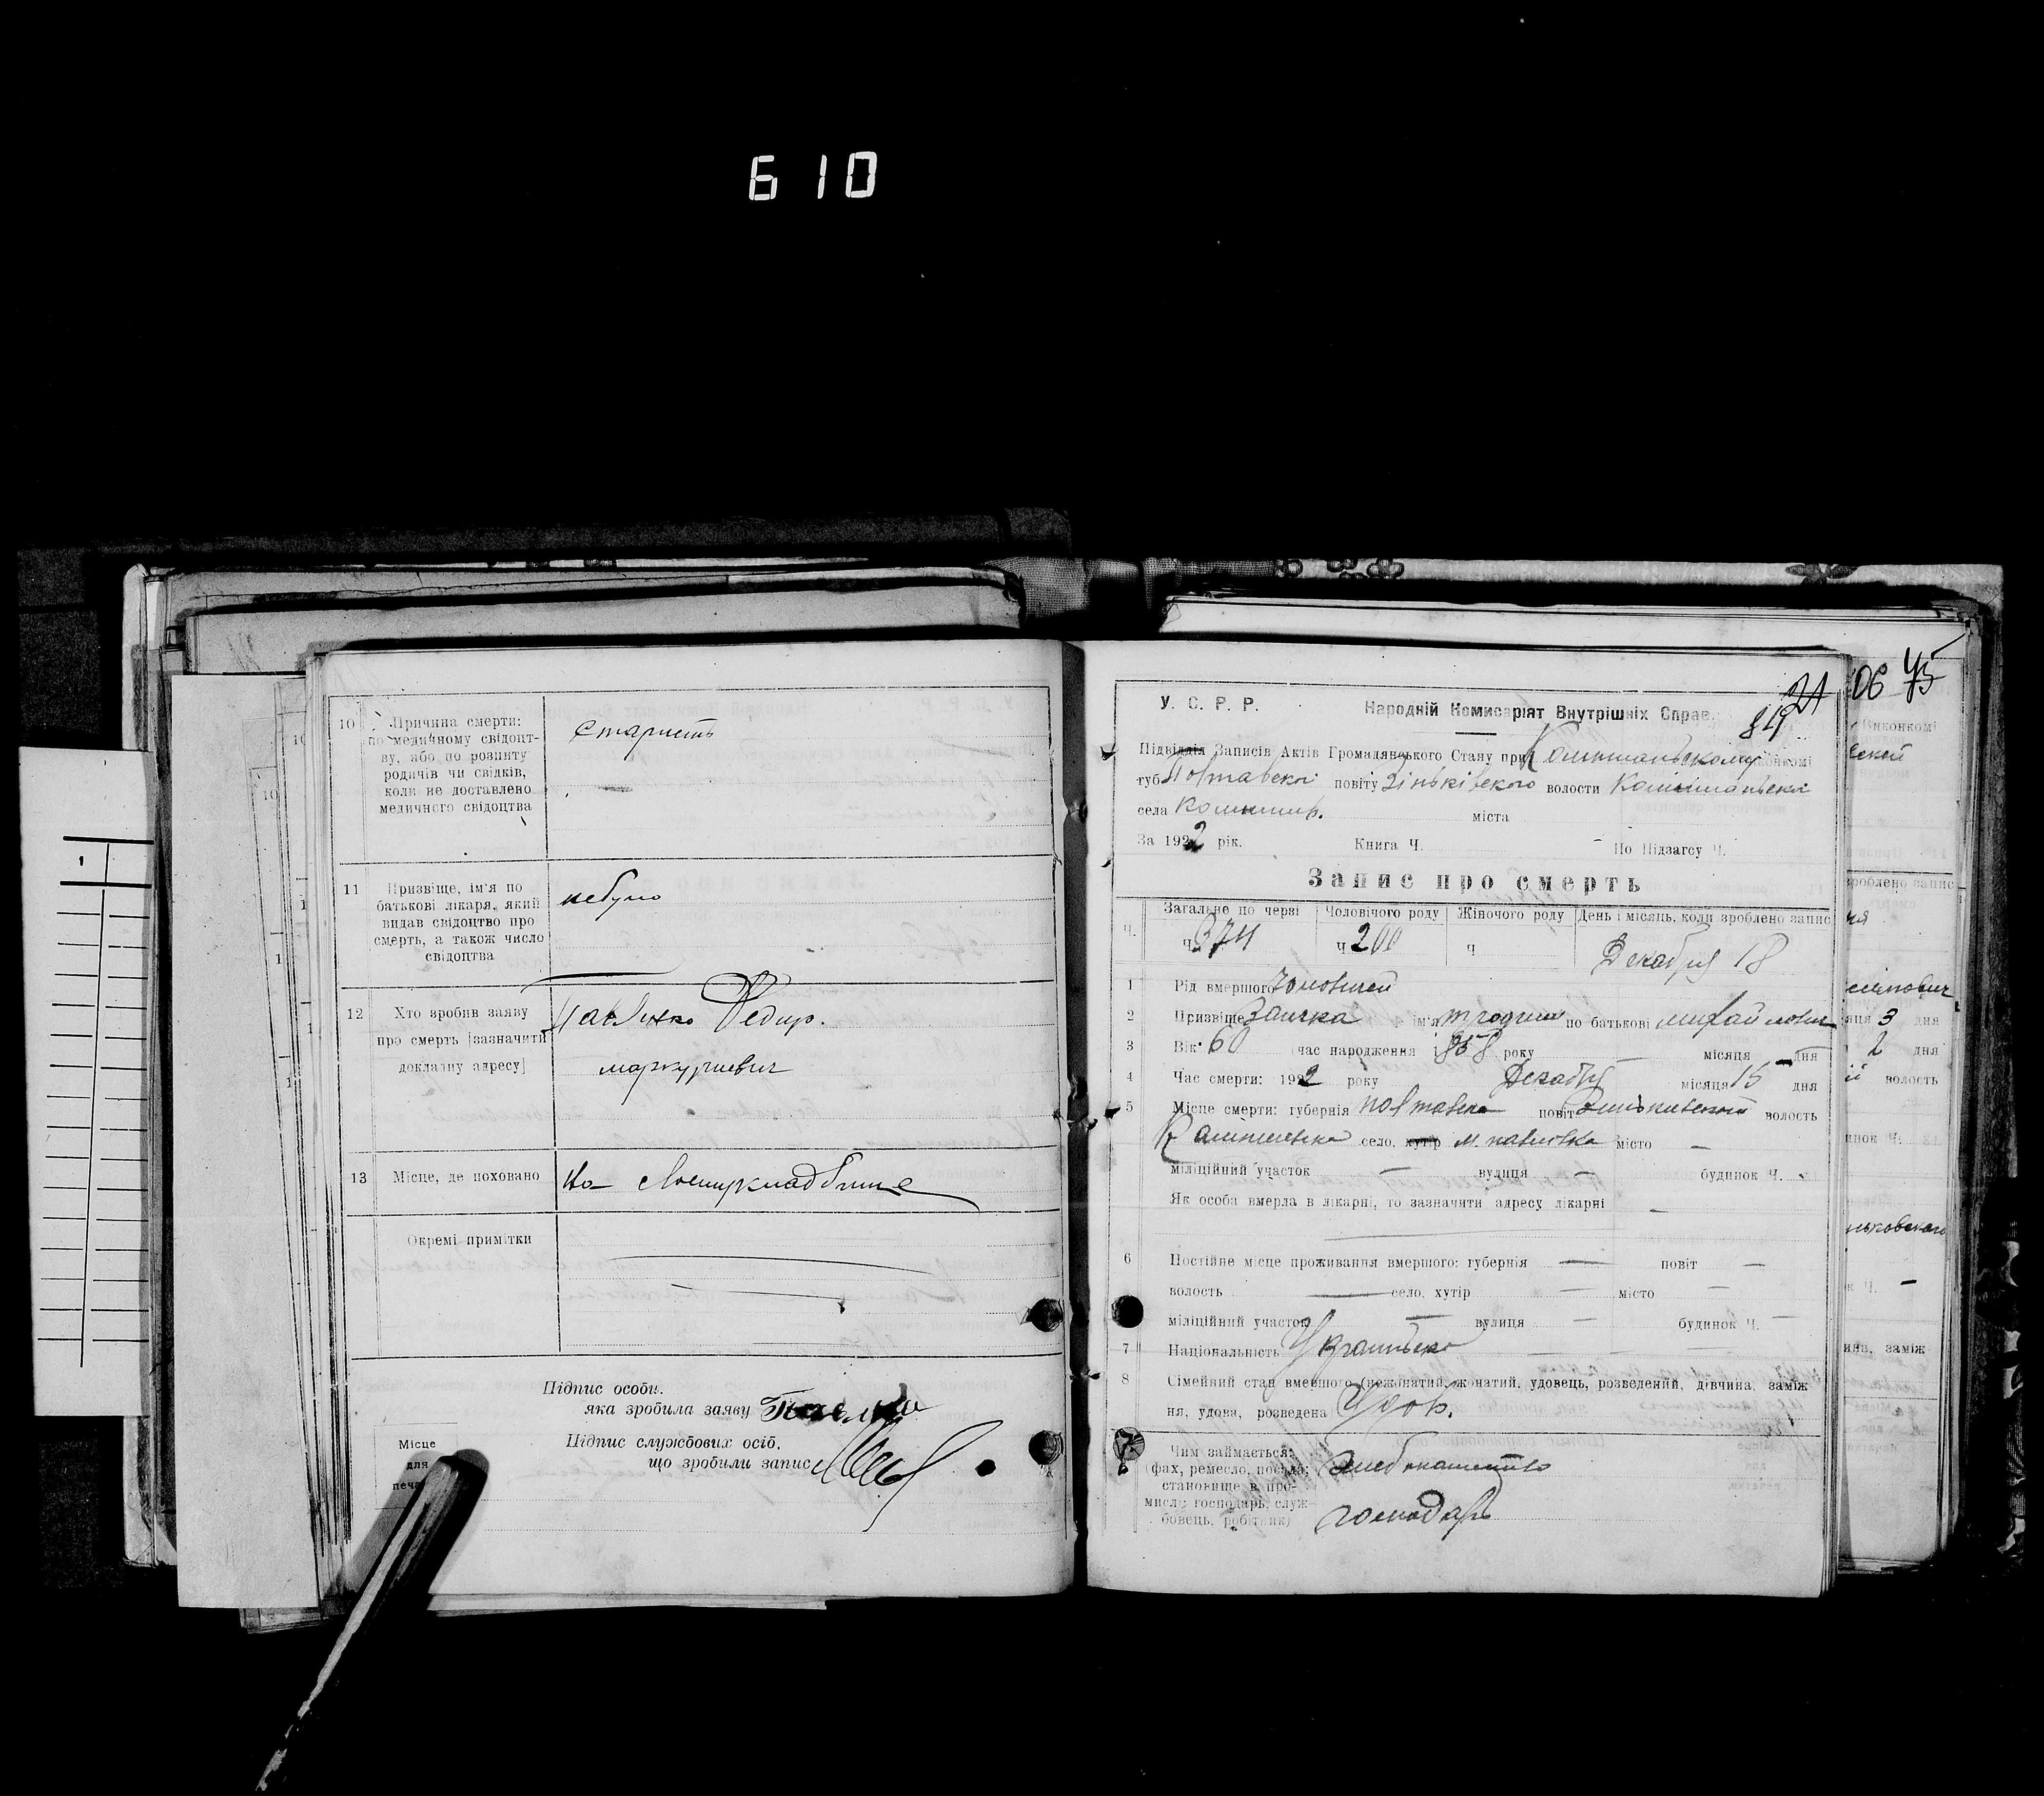 6 10
10 Причина смерти:
по медичному свідоцт-
ву, або по розпиту
родичів чи свідків,
коли не доставлено
медичного свідоцтва
Старість
11 Призвіще, ім'я по
батькові лікаря, який
видав свідоцтво про
смерть, а також число
свідоцтва
небуло
12 Хто зробив заяву
про смерть [зазначити
докладну адресу]
Павленко Федир.
маркуриевич
13 Місце, де поховано
На
Окремі примітки
Підпис особи,
яка зробила заяву
Підпис службових осіб,
що зробили запис
Місце
для
печат
1
21
84
У. С. Р. Р. Народній Комисаріят Внутрішніх Справ.
Підвідділ Записів Актів Громадянського Стану при конкомі
губ. Полтавскої повіту Зіньківского волости
села міста
За 1922 рік. Книга Ч. По Підзагсу Ч.
Запис про смерть
Ч. Загальне по черві Чоловічого роду Жіночого роду День і місяць, коли зроблено запис
Ч 374 Ч 200 Ч Декабря 18
1 Рід вмершого Чоловічей
2 Призвіще Заичка ім'я трофим по батькові михайлович
3 Вік 60 час народження 1858 року — місяця — дня
4 Час смерти: 1922 року Декабря місяця 15 дня
5 Місце смерти: губернія Полтавска повіт волость
село, хутір місто —
міліційний участок — вулиця — будинок Ч.
Як особа вмерла в лікарні, то зазначити адресу лікарні —
6 Постійне місце проживання вмершого: губернія — повіт —
волость — село, хутір — місто —
міліційний участок — вулиця — будинок Ч. —
7 Національність Украинска
8 Сімейний стан вмершого (нежонатий, жонатий, удовець, розведений, дівчина, заміж
ня, удова, розведена Удов.
Чим займається:
(фах, ремесло, посада;
становище в про-
мислі: господарь, служ-
бовець, робітник)
господарь
06 45
Виконкомі
зроблено запис
яця 3 дня
2 дня
волость
инок Ч.
к Ч. —
ина, заміж